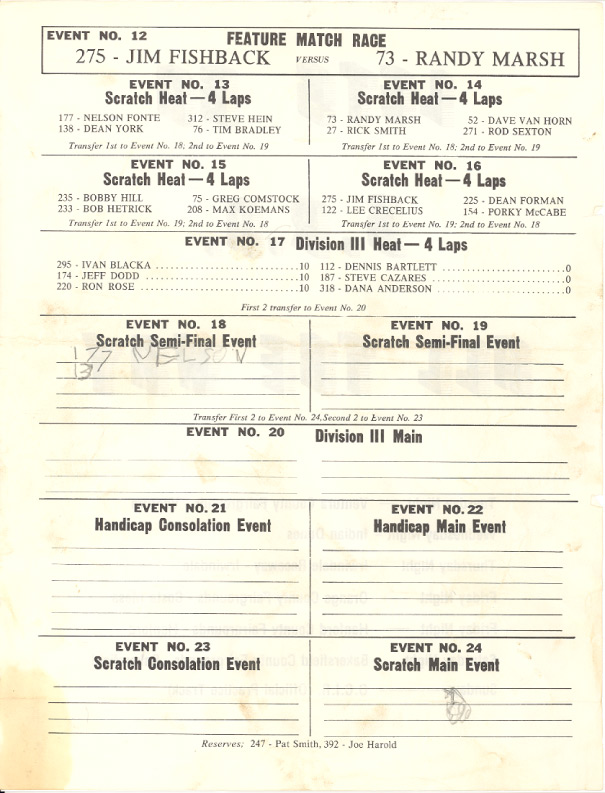 EVENT NO. 12 FEATURE MATCH RACE
275 - JIM FISHBACK VERSUS 73 - RANDY MARSH
EVENT NO. 13
Scratch Heat — 4 Laps
177 - NELSON FONTE 312 - STEVE HEIN
138 - DEAN YORK 76 - TIM BRADLEY
Transfer 1st to Event No. 18; 2nd to Event No. 19
EVENT NO. 14
Scratch Heat — 4 Laps
73 - RANDY MARSH 52 - DAVE VAN HORN
27 - RICK SMITH 271 - ROD SEXTON
Transfer 1st to Event No. 18; 2nd to Event No. 19
EVENT NO. 15
Scratch Heat — 4 Laps
235 - BOBBY HILL 75 - GREG COMSTOCK
233 - BOB HETRICK 208 - MAX KOEMANS
Transfer 1st to Event No. 19; 2nd to Event No. 18
EVENT NO. 16
Scratch Heat — 4 Laps
275 - JIM FISHBACK 225 - DEAN FORMAN
122 - LEE CRECELIUS 154 - PORKY McCABE
Transfer 1st to Event No. 19; 2nd to Event No. 18
EVENT NO. 17 Division III Heat — 4 Laps
295 - IVAN BLACKA ..........................10 112 - DENNIS BARTLETT ......................0
174 - JEFF DODD ..............................10 187 - STEVE CAZARES ........................0
220 - RON ROSE ..............................10 318 - DANA ANDERSON .......................0
First 2 transfer to Event No. 20
EVENT NO. 18
Scratch Semi-Final Event
177 NELSON
13
EVENT NO. 19
Scratch Semi-Final Event
Transfer First 2 to Event No. 24, Second 2 to Event No. 23
EVENT NO. 20 Division III Main
EVENT NO. 21
Handicap Consolation Event
EVENT NO. 22
Handicap Main Event
EVENT NO. 23
Scratch Consolation Event
EVENT NO. 24
Scratch Main Event
Reserves: 247 - Pat Smith, 392 - Joe Harold